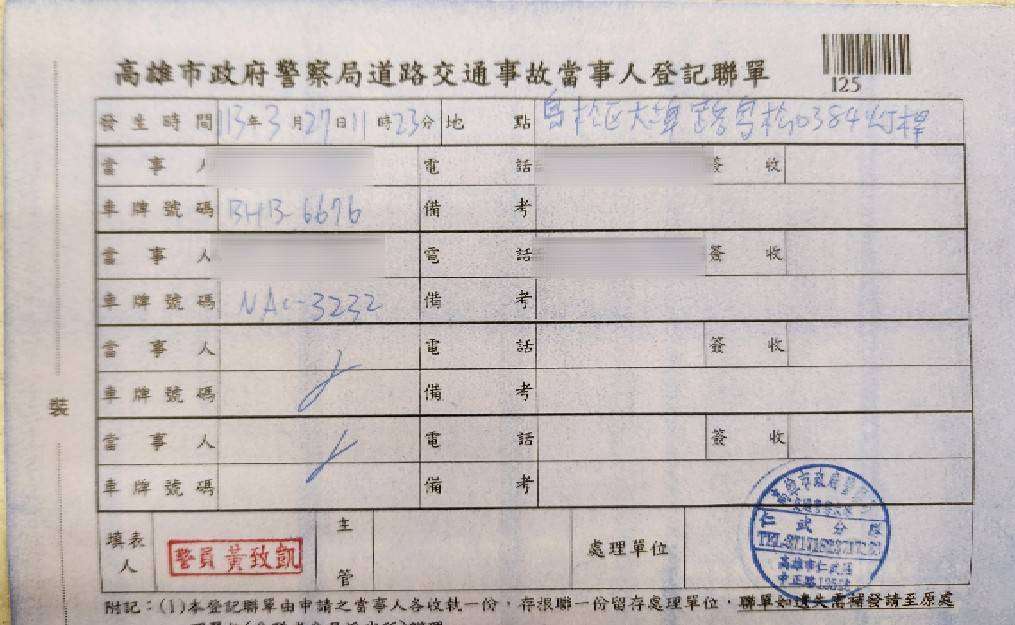 高雄市政府警察局道路交通事故當事人登記聯單
125
發生時間 113年3月27日11時23分 地點 鳥松區大埤路鳥松0384灯桿
當事人 電話 簽收
車牌號碼 BHB-6676 備考
當事人 電話 簽收
車牌號碼 NAC-3232 備考
當事人 電話 簽收
車牌號碼 備考
裝
當事人 電話 簽收
車牌號碼 備考
填表人 警員 黃致凱 主管 處理單位
高雄市政府警
仁武分隊
高雄市仁武區
中正路
附記：(1)本登記聯單由申請之當事人各收執一份，存根聯一份留存處理單位，聯單如遺失需補發請至原處